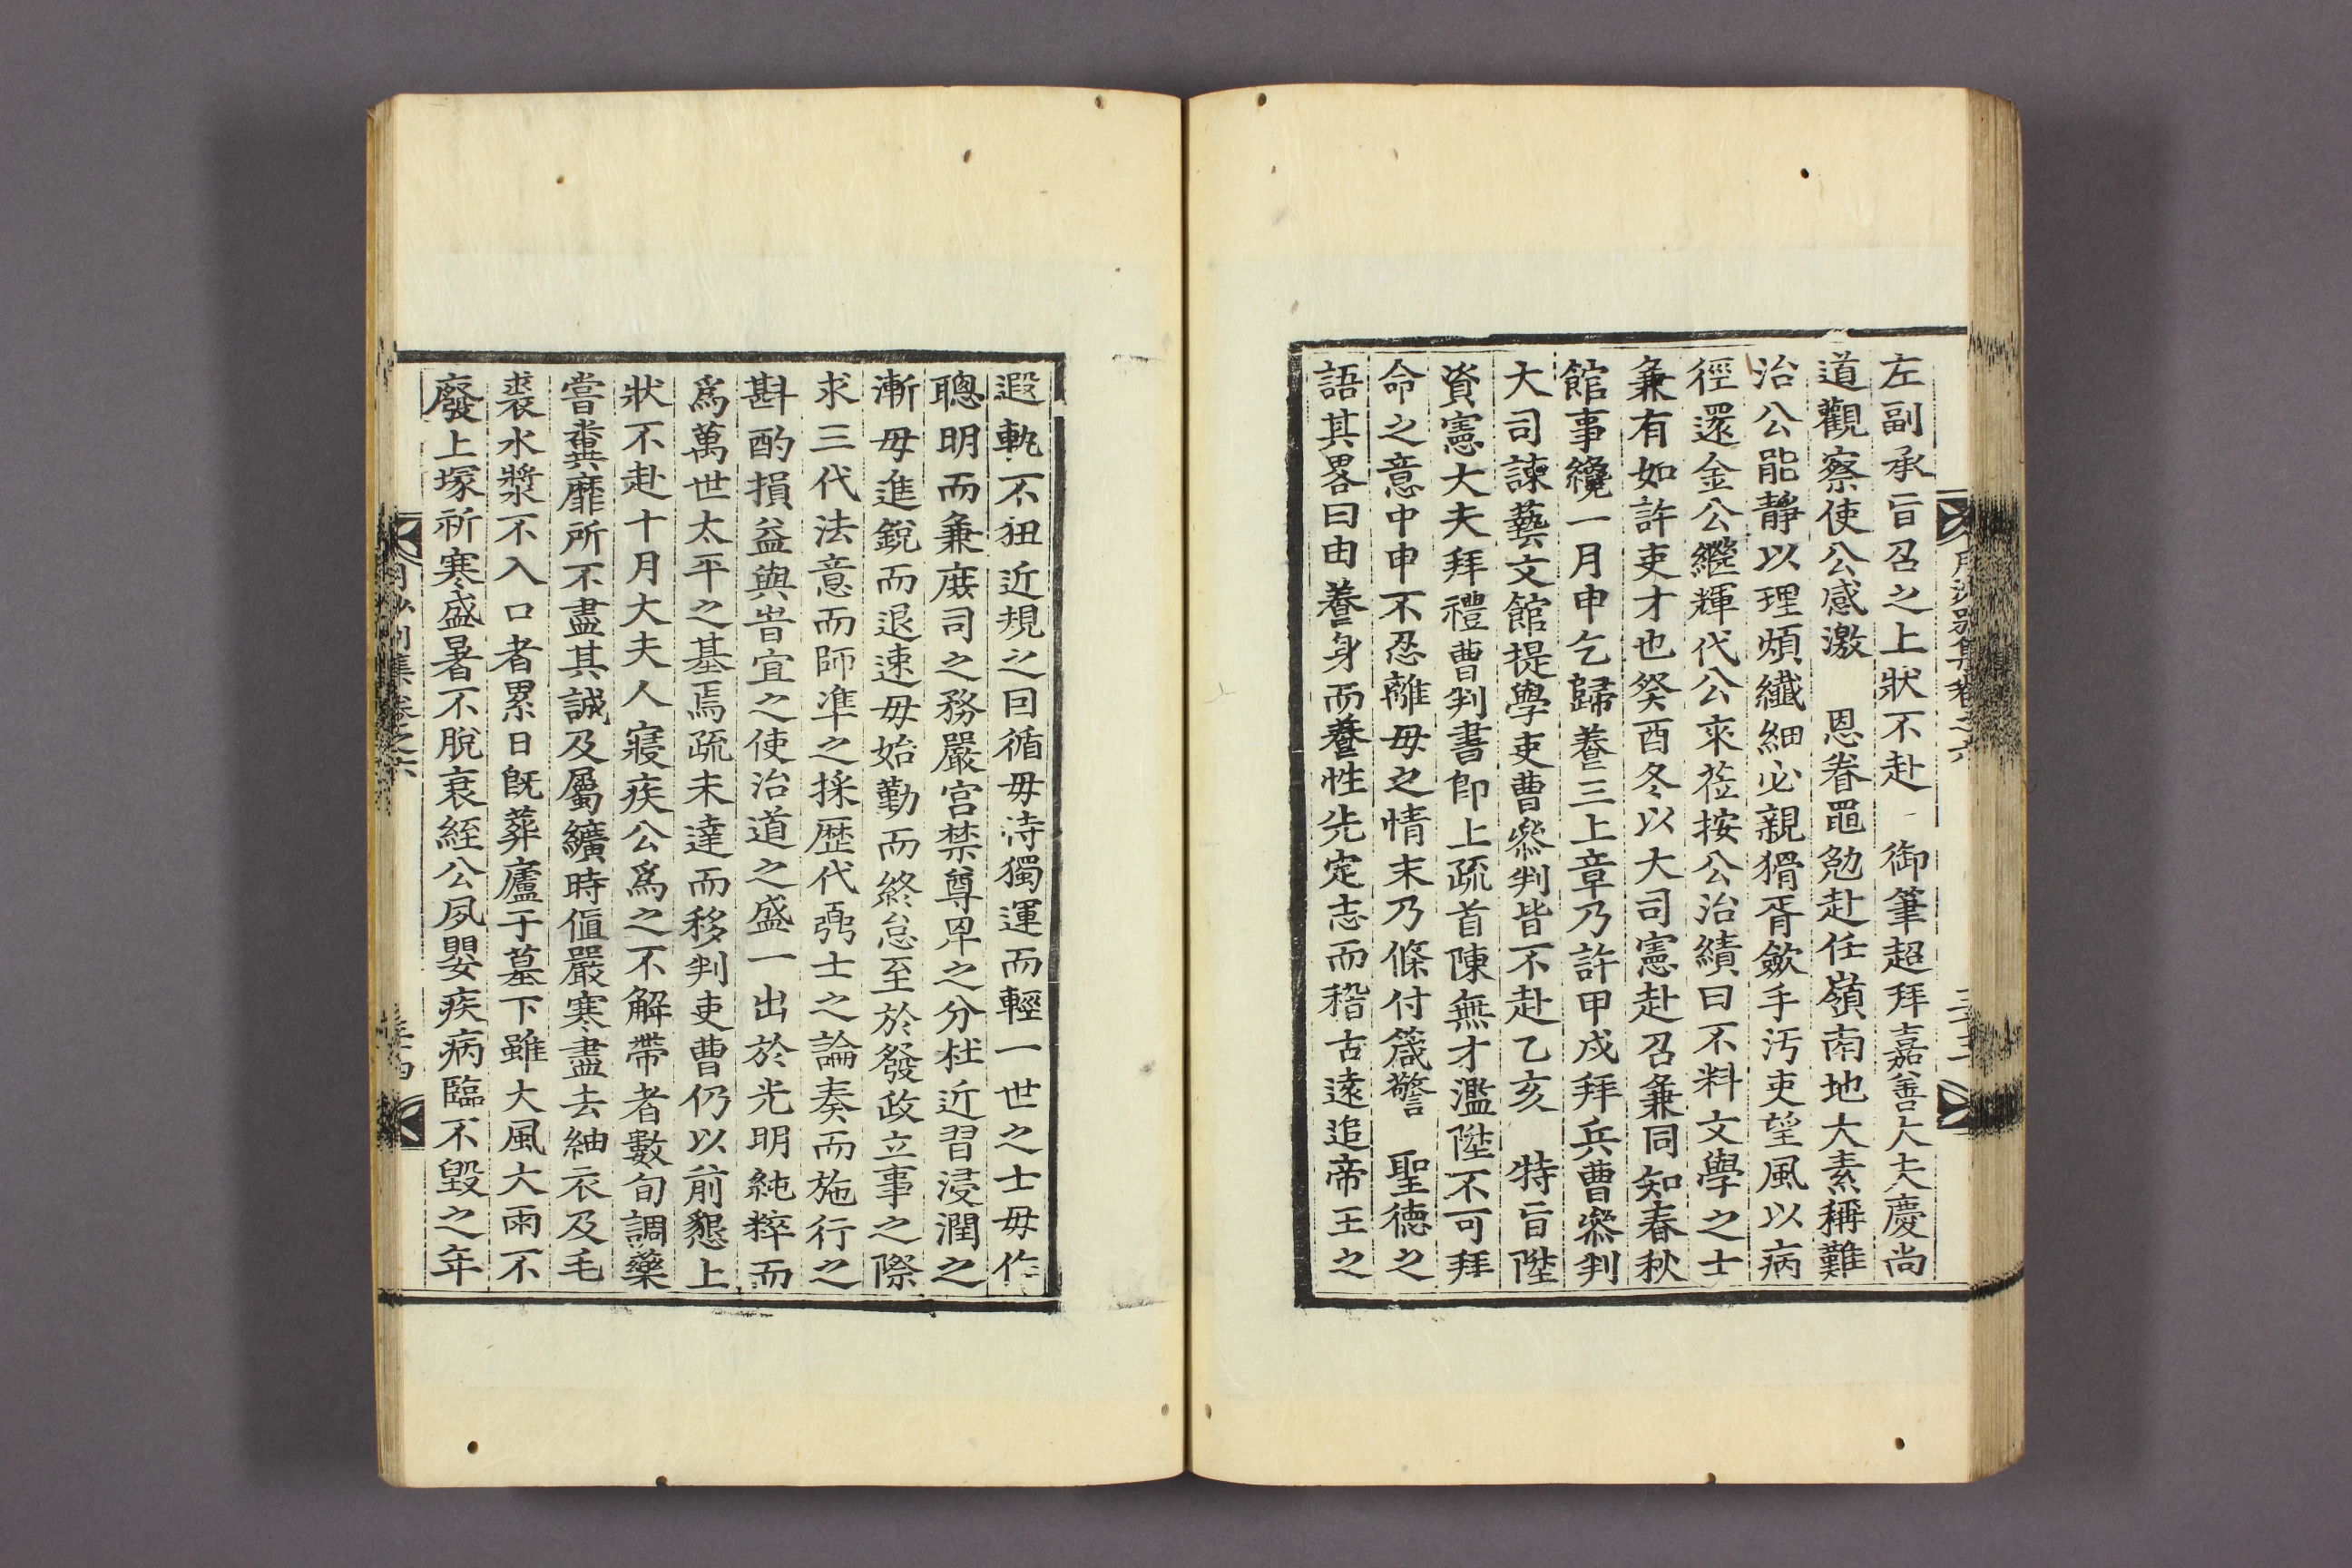 左副承旨召之上狀不赴 御筆超拜嘉善大夫慶尚
道觀察使公感激 恩眷黽勉赴任嶺南地大素稱難
治公能靜以理煩纖細必親猾胥歛手汚吏望風以病
徑還金公繼輝代公來莅按公治績曰不料文學之士
兼有如許吏才也癸酉冬以大司憲赴召兼同知春秋
館事纔一月申乞歸養三上章乃許甲戌拜兵曹叅判
大司諫藝文館提學吏曹叅判皆不赴乙亥 特旨陞
資憲大夫拜禮曹判書即上疏首陳無才濫陞不可拜
命之意中申不忍離母之情末乃條付箴警 聖德之
語其畧曰由養身而養性先定志而稽古遠追帝王之
遐軌不狃近規之回循毋恃獨運而輕一世之士毋作
聰明而兼庶司之務嚴宮禁尊卑之分杜近習浸潤之
漸毋進銳而退速毋始勤而終怠至於發政立事之際
求三代法意而師準之採歷代弼士之論奏而施行之
斟酌損益與時宜之使治道之盛一出於光明純粹而
爲萬世太平之基焉疏未達而移判吏曹仍以前懇上
狀不赴十月大夫人寢疾公爲之不解帶者數旬調藥
嘗糞靡所不盡其誠及屬纊時値嚴寒盡去紬衣及毛
裘水漿不入口者累日旣葬廬于墓下雖大風大雨不
廢上塚祈寒盛暑不脫衰絰公夙嬰疾病臨不毀之年